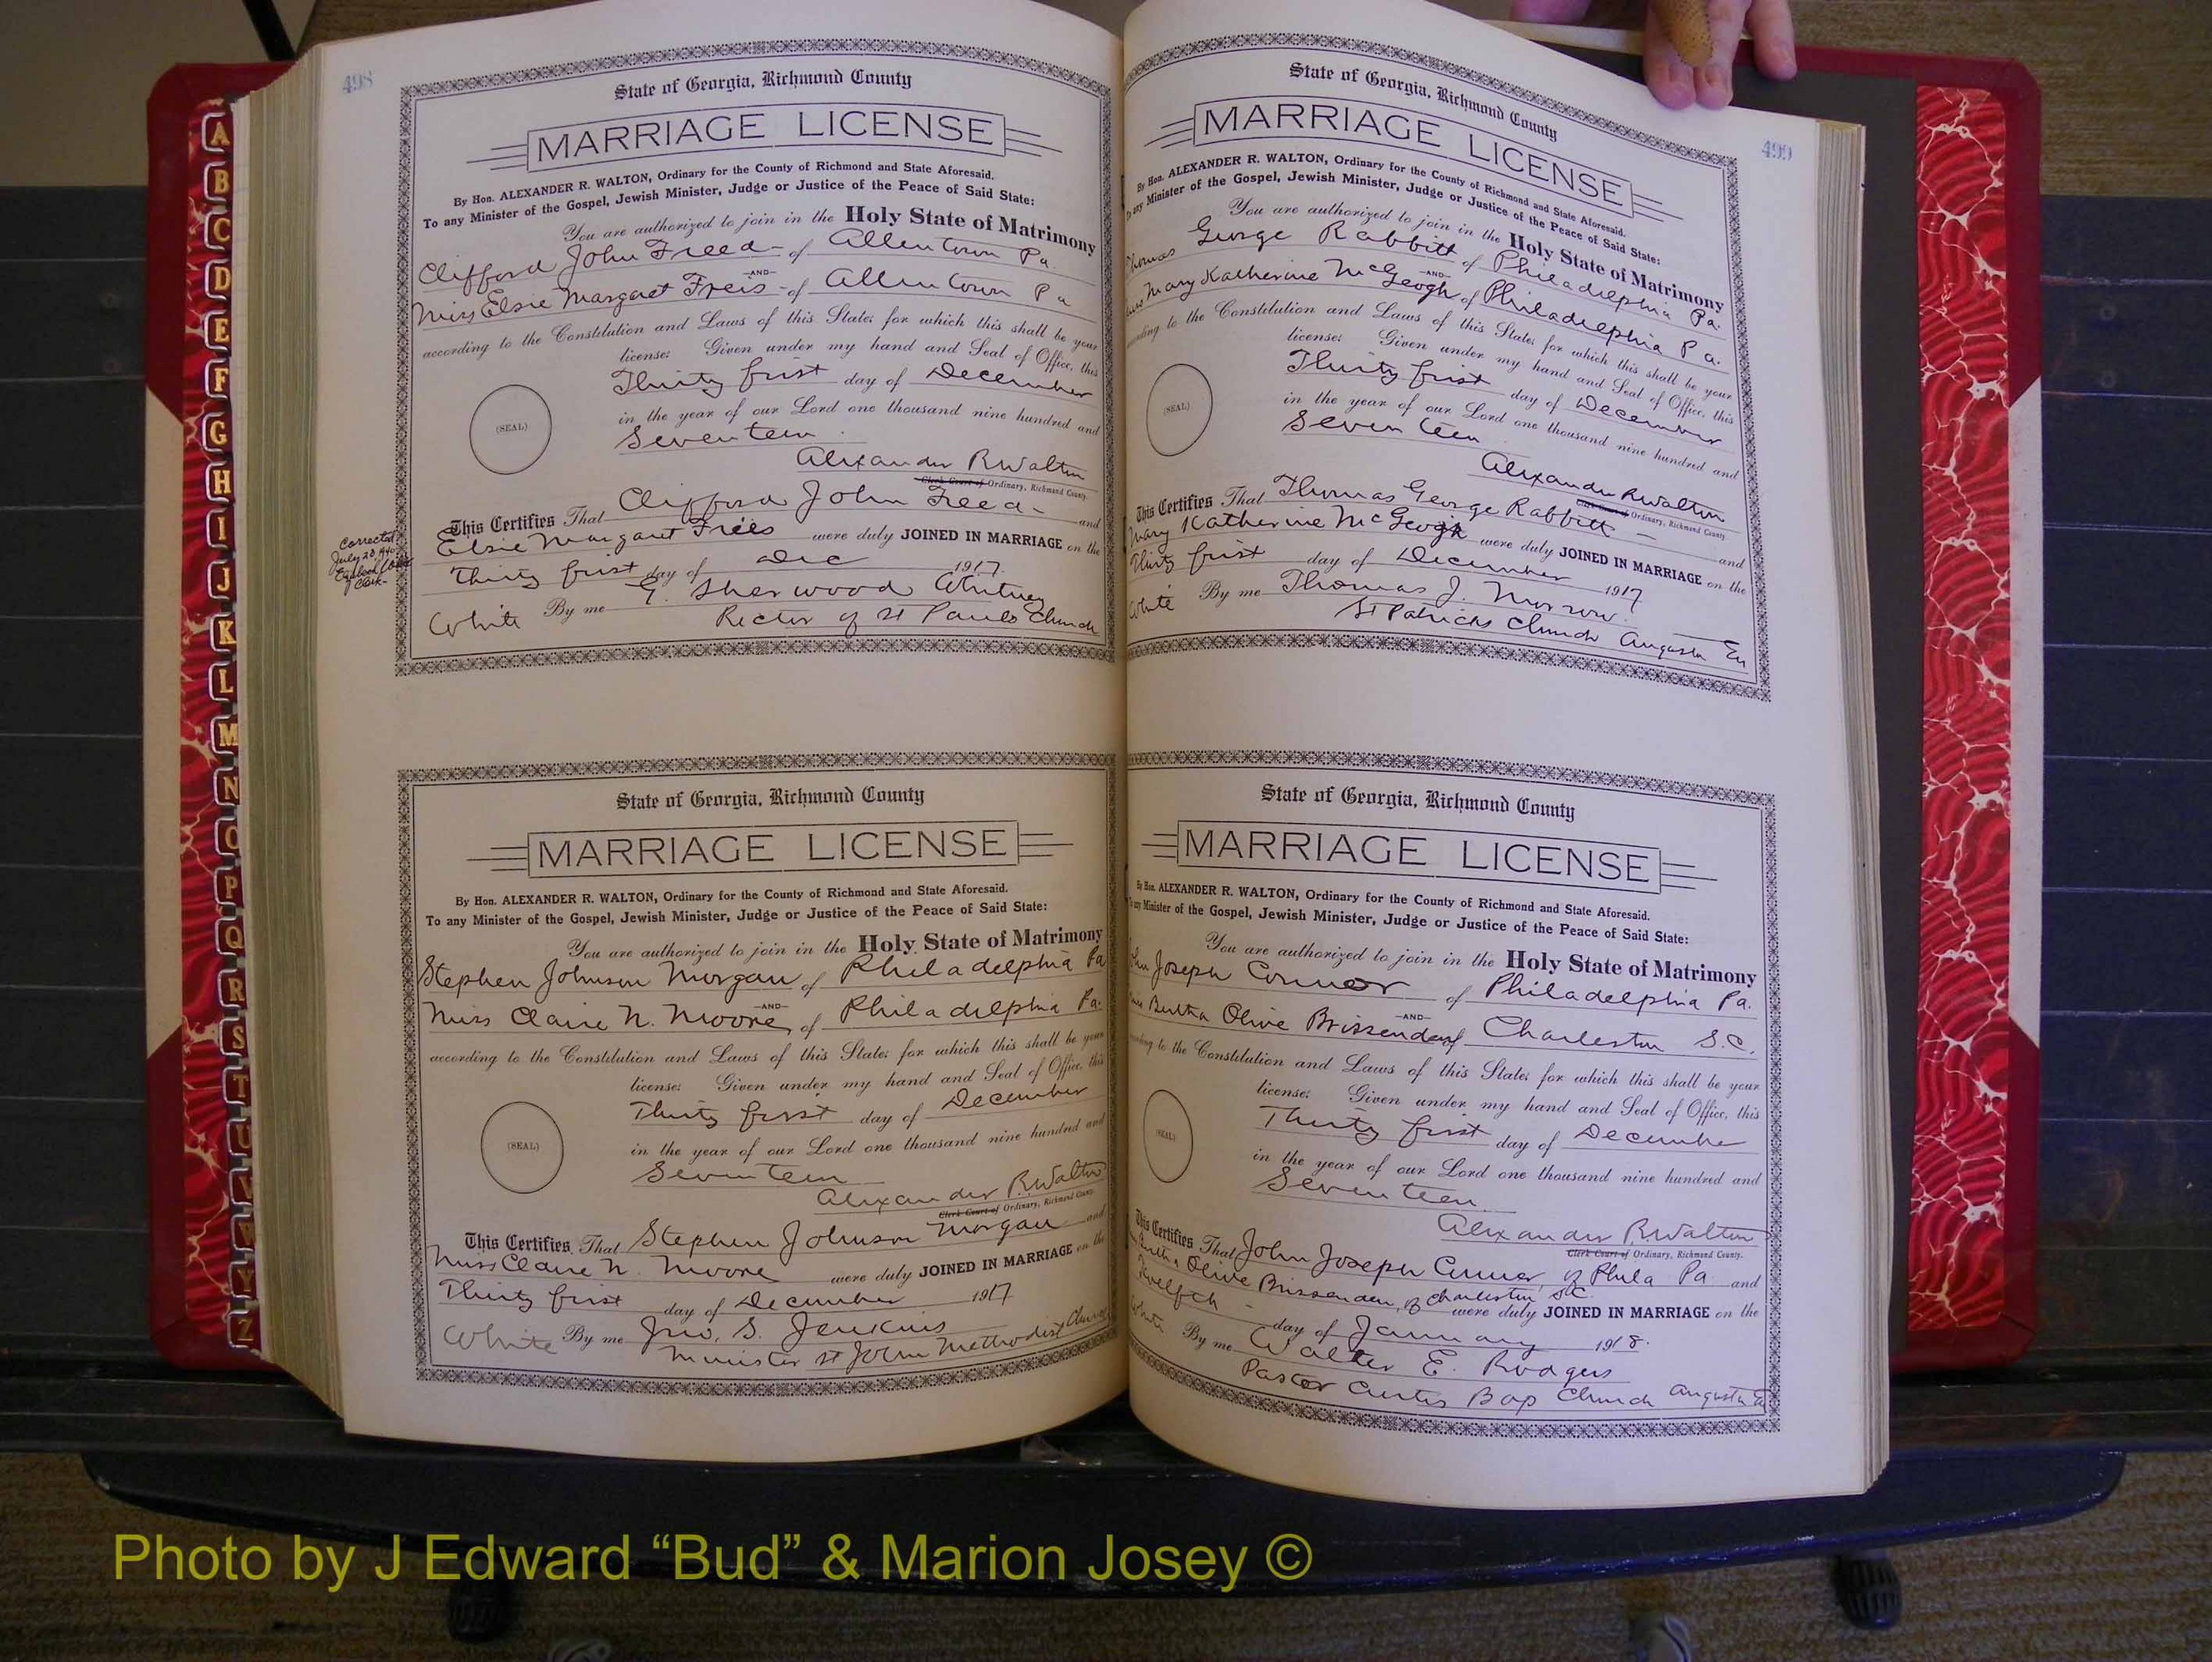 498
State of Georgia, Richmond County
MARRIAGE LICENSE
By Hon. ALEXANDER R. WALTON, Ordinary for the County of Richmond and State Aforesaid.
To any Minister of the Gospel, Jewish Minister, Judge or Justice of the Peace of Said State:
You are authorized to join in the Holy State of Matrimony
Clifford John Freed of Allentown Pa
—AND—
Miss Elsie Margaret Freis of Allentown Pa
according to the Constitution and Laws of this State; for which this shall be your
license: Given under my hand and Seal of Office, this
Thirty first day of December
in the year of our Lord one thousand nine hundred and
(SEAL)
Seventeen
Alexander R Walton
Clerk Court of Ordinary, Richmond County.
This Certifies That Clifford John Freed and
Elsie Margaret Frees were duly JOINED IN MARRIAGE on the
Thirty first day of Dec 1917
By me G. Sherwood Whitney
White Rector of St Pauls Church
Corrected
July 28, 1940
Clerk
State of Georgia, Richmond County
MARRIAGE LICENSE
By Hon. ALEXANDER R. WALTON, Ordinary for the County of Richmond and State Aforesaid.
To any Minister of the Gospel, Jewish Minister, Judge or Justice of the Peace of Said State:
You are authorized to join in the Holy State of Matrimony
Stephen Johnson Morgan of Philadelphia Pa
—AND—
Miss Claire N. Moore of Philadelphia Pa.
according to the Constitution and Laws of this State; for which this shall be your
license: Given under my hand and Seal of Office, this
Thirty first day of December
in the year of our Lord one thousand nine hundred and
(SEAL)
Seventeen
Alexander R. Walton
Clerk Court of Ordinary, Richmond County.
This Certifies That Stephen Johnson Morgan and
Miss Claire N. Moore were duly JOINED IN MARRIAGE on the
Thirty first day of December 1917
White By me Jno. S. Jenkins
Minister St John Methodist Church
499
State of Georgia, Richmond County
MARRIAGE LICENSE
By Hon. ALEXANDER R. WALTON, Ordinary for the County of Richmond and State Aforesaid.
To any Minister of the Gospel, Jewish Minister, Judge or Justice of the Peace of Said State:
You are authorized to join in the Holy State of Matrimony
Thomas George Rabbitt of Philadelphia Pa.
—AND—
Mary Katherine McGeogh of Philadelphia Pa.
according to the Constitution and Laws of this State; for which this shall be your
license: Given under my hand and Seal of Office, this
Thirty first day of December
in the year of our Lord one thousand nine hundred and
(SEAL)
Seventeen
Alexander R Walton
Clerk Court of Ordinary, Richmond County.
This Certifies That Thomas George Rabbitt and
Mary Katherine McGeogh were duly JOINED IN MARRIAGE on the
Thirty first day of December 1917
White By me Thomas J. Morrow.
St Patricks Church Augusta Ga
State of Georgia, Richmond County
MARRIAGE LICENSE
By Hon. ALEXANDER R. WALTON, Ordinary for the County of Richmond and State Aforesaid.
To any Minister of the Gospel, Jewish Minister, Judge or Justice of the Peace of Said State:
You are authorized to join in the Holy State of Matrimony
John Joseph Connor of Philadelphia Pa.
—AND—
Miss Bertha Olive Brissenden of Charleston S.C.
according to the Constitution and Laws of this State; for which this shall be your
license: Given under my hand and Seal of Office, this
Thirty first day of December
in the year of our Lord one thousand nine hundred and
(SEAL)
Seventeen
Alexander R Walton
Clerk Court of Ordinary, Richmond County.
This Certifies That John Joseph Conner, of Phila Pa and
Bertha Olive Brissenden, of Charleston, S.C. were duly JOINED IN MARRIAGE on the
Twelfth day of January 1918.
White By me Walter E. Rodgers
Pastor Curtis Bap Church Augusta Ga
A
B
C
D
E
F
G
H
I
J
K
L
M
N
O
P
Q
R
S
T
U
V
W
Y
Z
Photo by J Edward “Bud” & Marion Josey ©